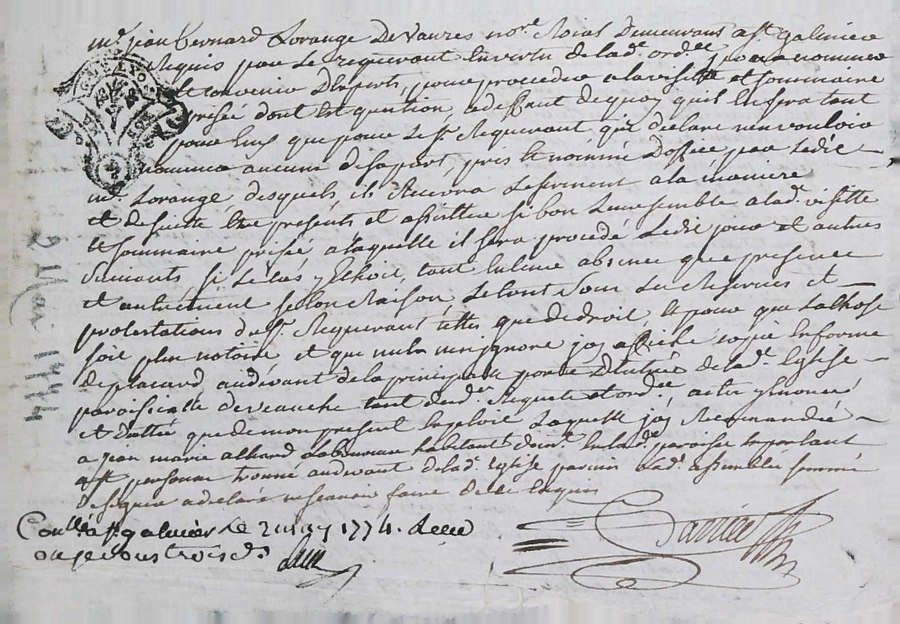 me. jean bernard Lorange Devaures nore. Roial Demeurant a st. galmier
Requis par Le requerant En vertu de lad. ordce. pour nommer
et convenir D'Experts, pour proceder a la visitte et sommaire
prisée dont Est question, a deffaut de quoy quil En fera tant
pour Eux que pour Le sr. Requerant qui declare nen vouloir
nommer aucun de sa part, pris et nommé D'office par Ledit
me. Lorange desquels il Recevra Le serment a la maniere
et de suitte Etre presents et assister si bon Leur semble a lad. visitte
et sommaire prisée a laquelle il sera procedé Ledit jour et autres
suivants si Le cas y Echoit tant En leur absence que presence
et autrement selon Raison, Le tout sous Les Reserves et
protestations du sr. Requerant telles que de droit et pour que La chose
soit plus notoire et que nul n'en ignore j'ay affiché copie En forme
de placard au devant de la principalle porte D'Entrée de lad. Eglise
paroissialle de veauche tant desd. Requete et ordce.
et que de mon present Exploit Laquelle j'ay Recommandée
a jean marie Laboureur habitant lad. paroisse
et personne trouvé au devant de lad. Eglise parmis lad. assemblée sommé
de signer a declaré ne scavoir faire de ce Enquis
Conlle. a st. galmier Le 2 may 1774. Reçu
onze sous trois ds.
2 Mai 1774